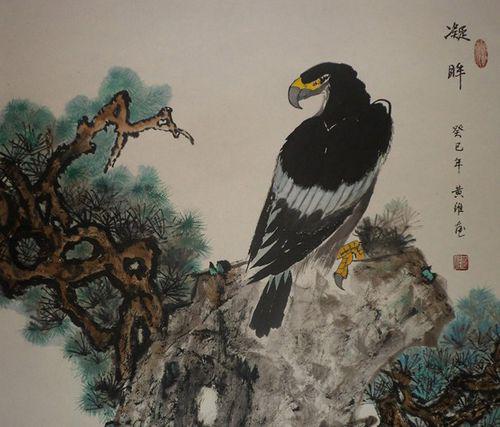 凝眸
癸巳年黄维画